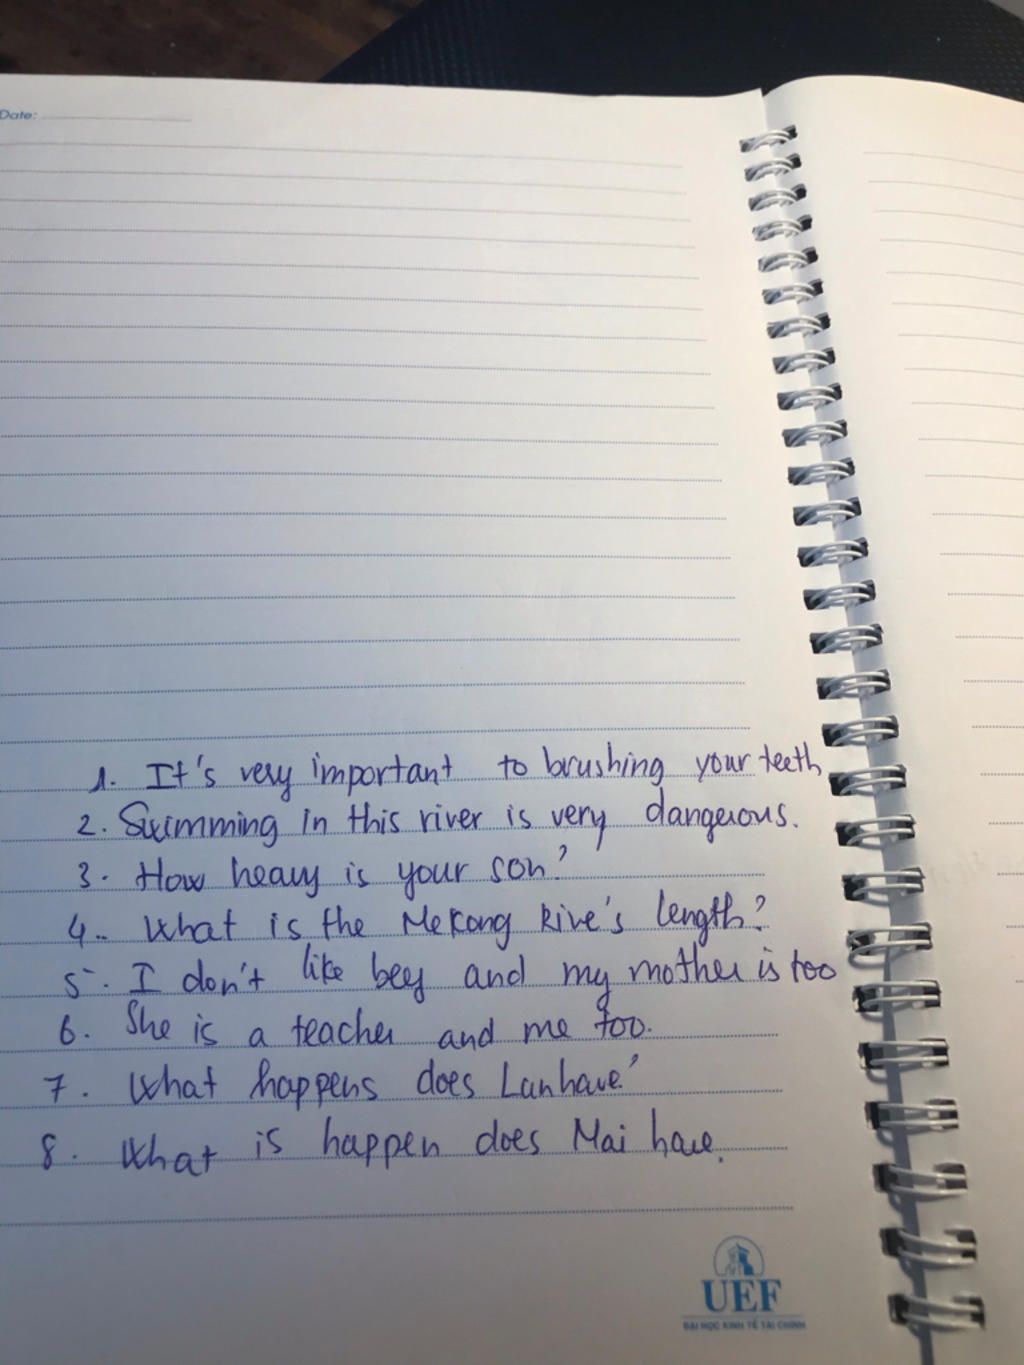 Date:
1. It's very important to brushing your teeth
2. Swimming in this river is very dangerous.
3. How heavy is your son?
4. What is the Mekong Rive's length?
5. I don't like bey and my mother is too
6. She is a teacher and me too.
7. What happens does Lan have?
8. What is happen does Mai have.
UEF
ĐẠI HỌC KINH TẾ TÀI CHÍNH